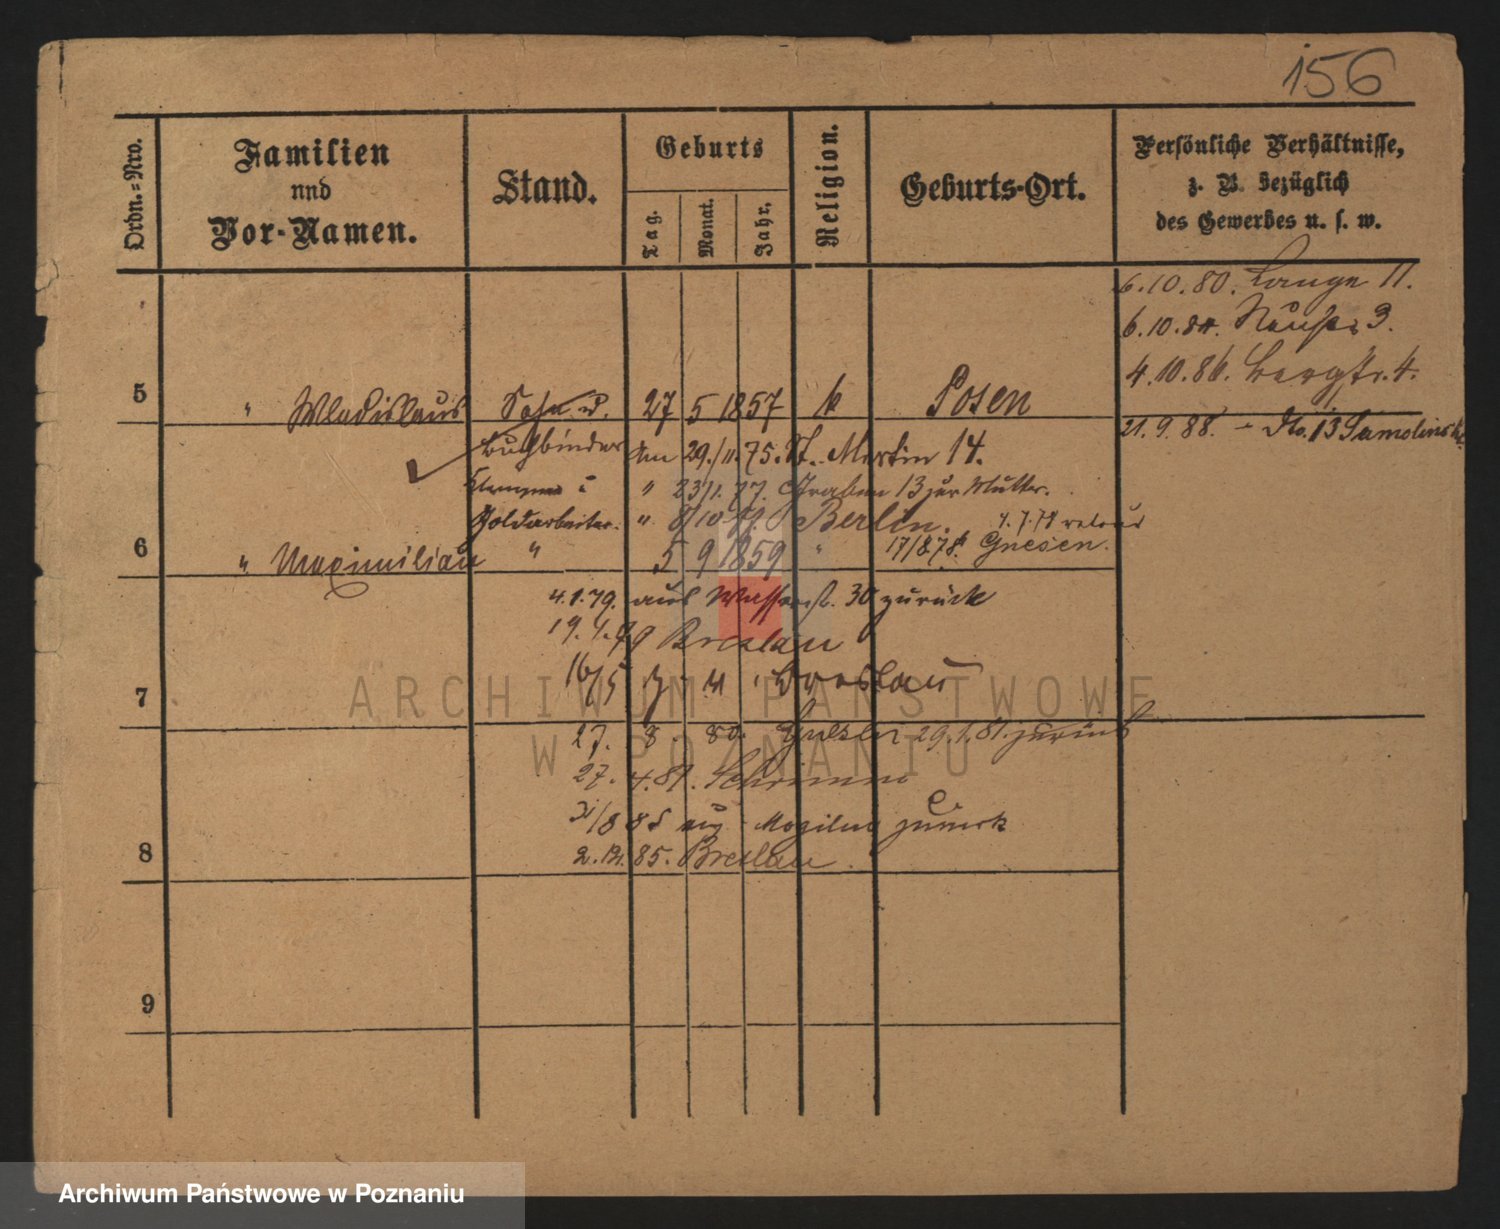 156
Ordn.=Nro.
Familien
und
Vor-Namen.
Stand.
Geburts
Tag.
Monat.
Jahr.
Religion.
Geburts-Ort.
Persönliche Verhältnisse,
z. B. bezüglich
des Gewerbes u. s. w.
6.10.80. Lange 11.
6.10.84. 3.
4.10.86. Bergstr. 4.
21.9.88. - No. 13
5 " Wladislaus Sohn 27 5 1857 k Posen
Buchbinder am 29./11.75. St. Martin 14.
" 23/1.77. Graben 13 zur Mutter.
Goldarbeiter. " 8/10 Berlin. 4.7.78 retour
17/8.78. Gnesen.
6 " Maximilian " 5 9 1859 "
4.1.79. aus Wasserstr. 30 zurück
19.4.79 Breslau
16/5 Breslau
7
27. 8. 80. 29.1.81. zurück
27. 4.81. Schrimm
8 85 aus Mogilno zurück
8
2.12.85. Breslau.
9
ARCHIWUM PAŃSTWOWE
W POZNANIU
Archiwum Państwowe w Poznaniu